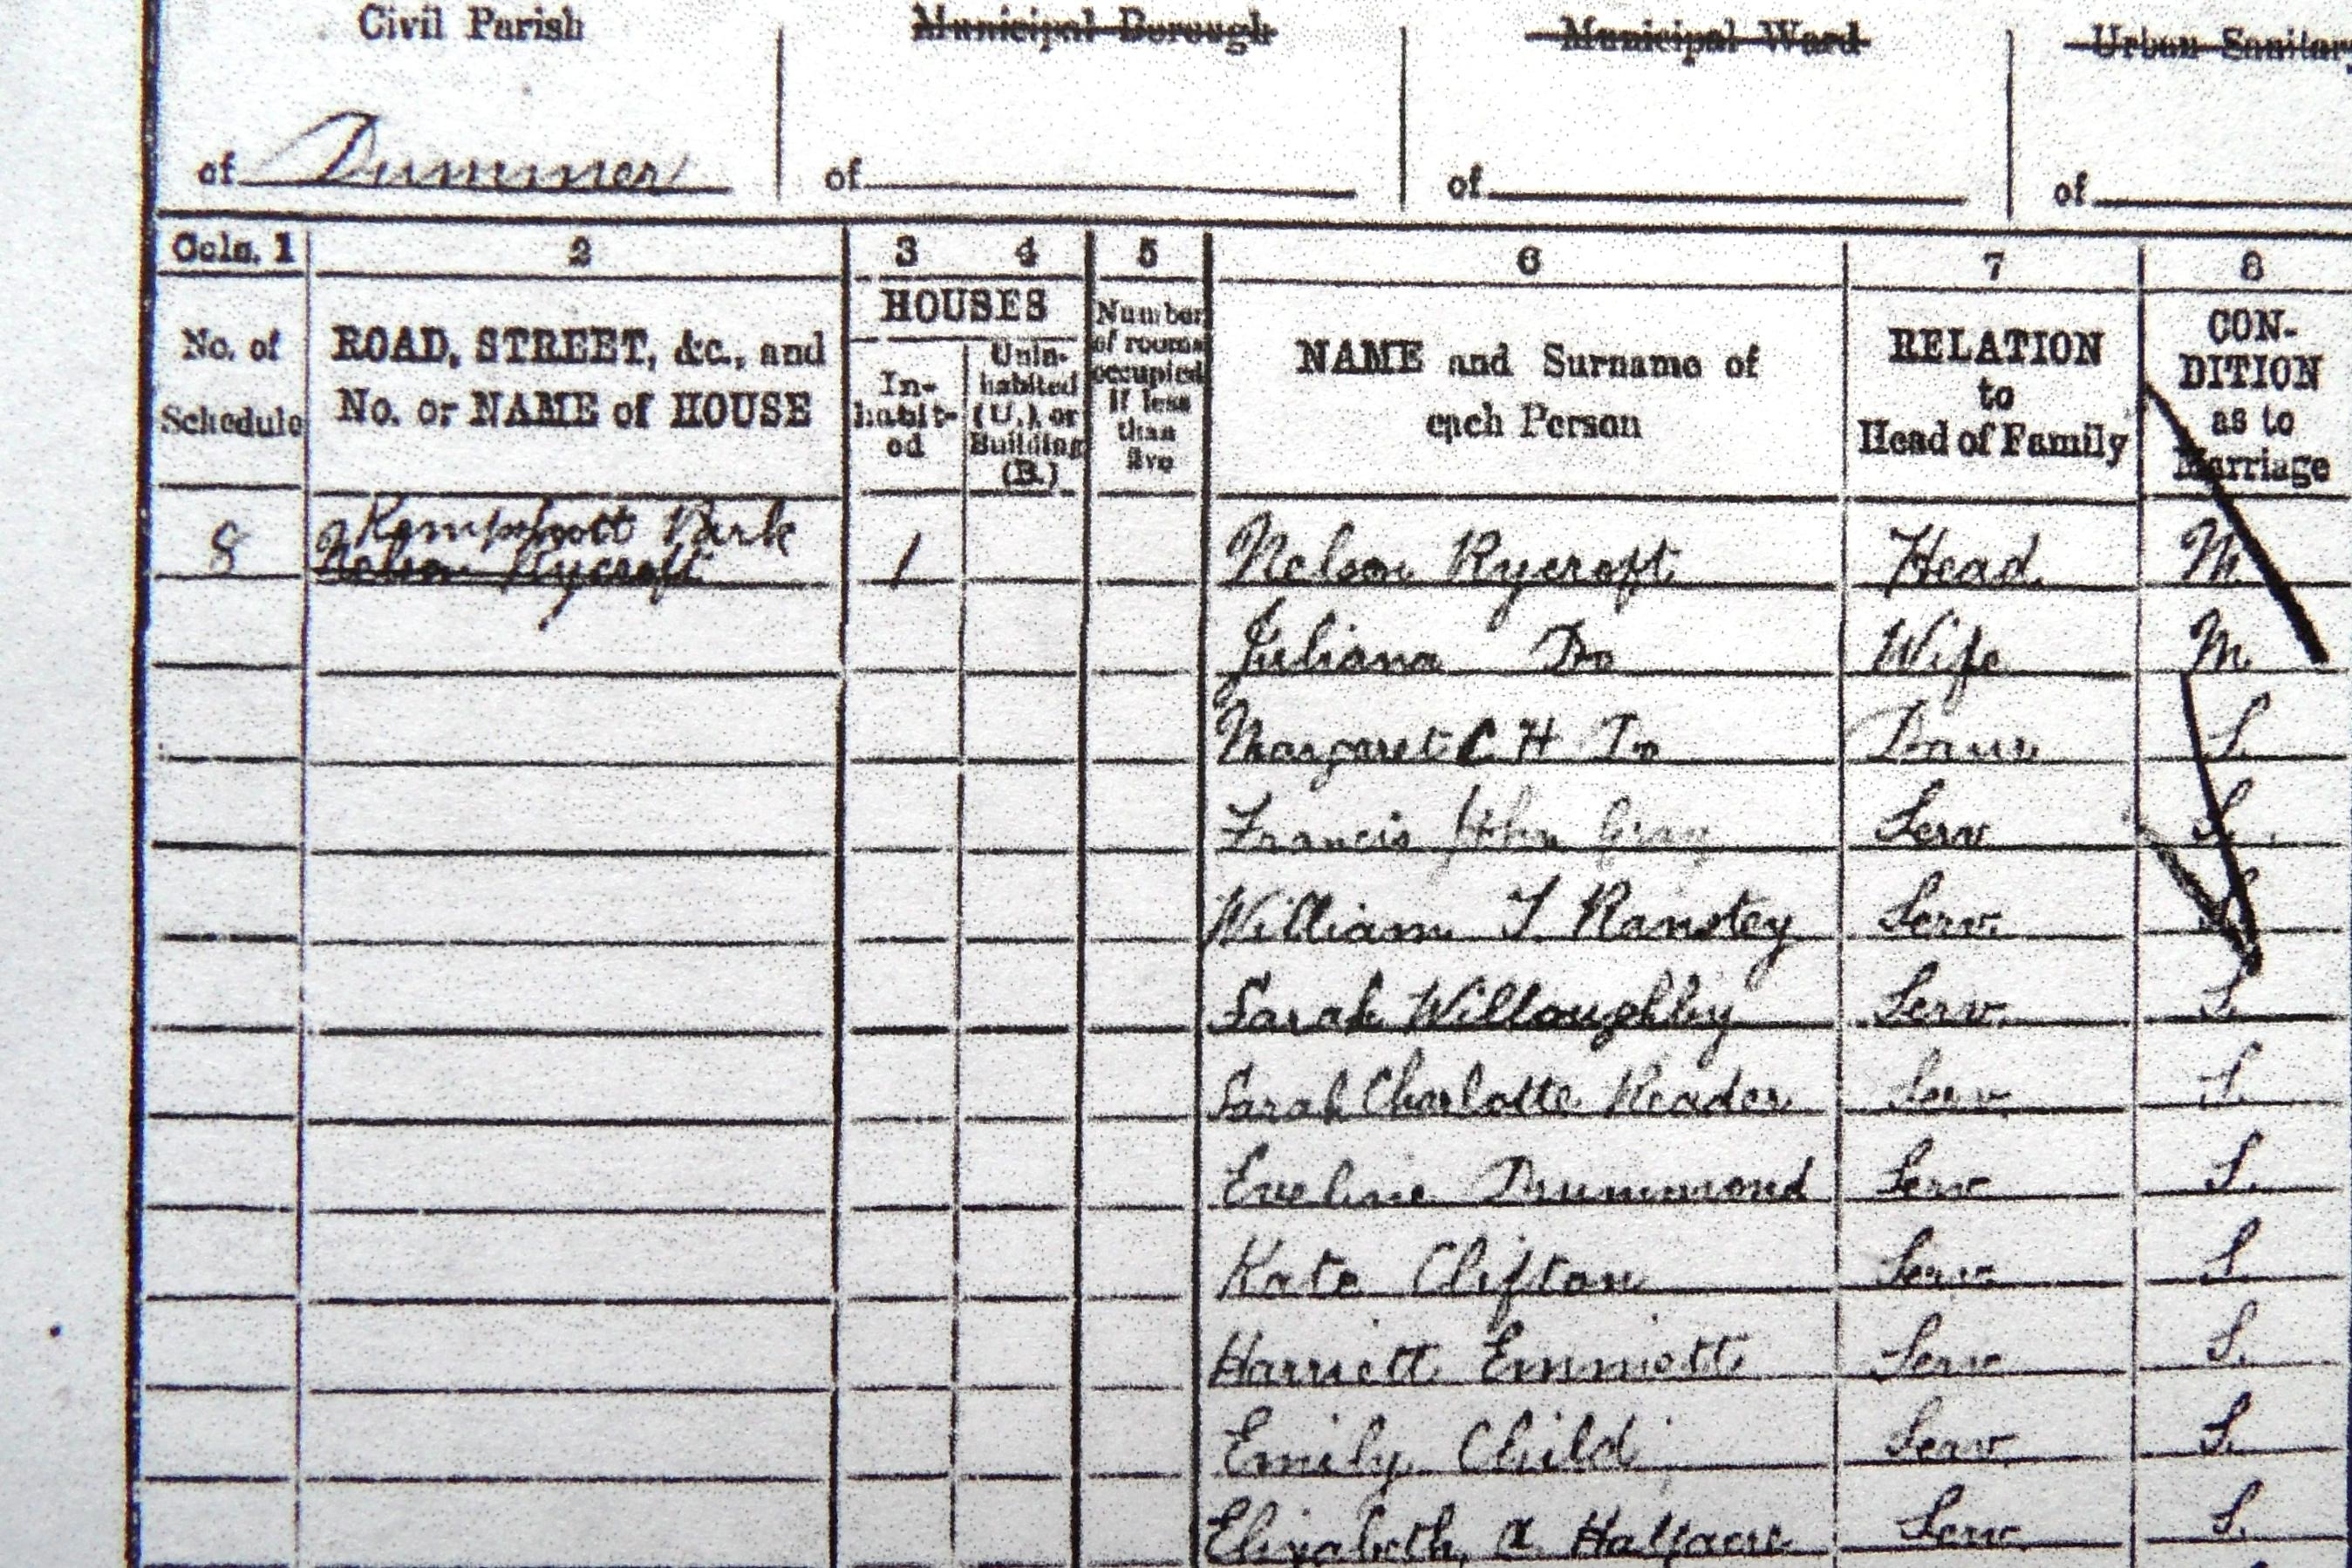 Civil Parish Municipal Borough Municipal Ward Urban Sanitary
of Dummer of of of
Cols. 1 2 3 4 5 6 7 8
No. of Schedule
ROAD, STREET, &c., and
No. or NAME of HOUSE
HOUSES
In-
habit-
ed
Unin-
habited
(U.) or
Building
(B.)
Number
of rooms
occupied
if less
than
five
NAME and Surname of
each Person
RELATION
to
Head of Family
CON-
DITION
as to
Marriage
Kempshott Park
8 Nelson Rycroft 1 Nelson Rycroft Head M
Juliana Do Wife M
Margaret C H Do S
Francis John Gray Serv S
William T. Serv. S
Sarah Willoughby Serv. S
Sarah Charlotte Reader Serv. S.
Eveline Drummond Serv S.
Kate Clifton Serv S
Harriett Emmett Serv S.
Emily Child Serv S.
Elizabeth A Halfacre Serv S.